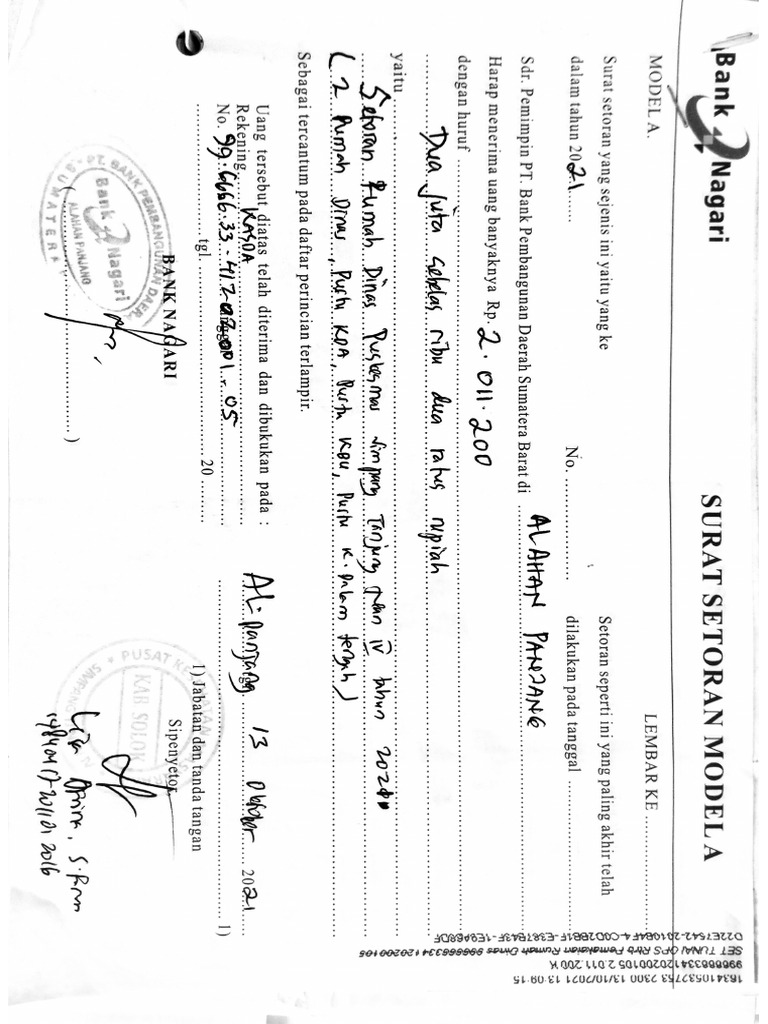 Bank Nagari
SURAT SETORAN MODEL A
MODEL A.
LEMBAR KE ............
Surat setoran yang sejenis ini yaitu yang ke
dalam tahun 2021......
No. ..................
Setoran seperti ini yang paling akhir telah
dilakukan pada tanggal ..................
Sdr. Pemimpin PT. Bank Pembangunan Daerah Sumatera Barat di ALAHAN PANJANG
Harap menerima uang banyaknya Rp. 2.011.200
dengan huruf
Dua juta sebelas ribu dua ratus rupiah
yaitu
Setoran Rumah Dinas Puskesmas Simpang Tanjung Nan IV tahun 2021
( 2 Rumah Dinas, Pustu KDA, Pustu KBU, Pustu K. Dalam tengah )
Sebagai tercantum pada daftar perincian terlampir.
Uang tersebut diatas telah diterima dan dibukukan pada :
Rekening KASDA
No. 99.6666.33-41.202001.05
tgl. .................. 20 ......
BANK NAGARI
PT. BANK PEMBANGUNAN DAERAH
SUMATERA
Bank Nagari
ALAHAN PANJANG
(..................)
AL. Panjang 13 Oktober 2021
1)
1) Jabatan dan tanda tangan
Sipenyetor
PUSAT KESEHATAN
KAB SOLOK
19840417 201101 2016
1634105327753 2300 13/10/2021 13:09:15
996666334120200105 2.011.200 K
SET TUNAI OPS Rtrb Pemakaian Rumah Dinas 996666334120200105